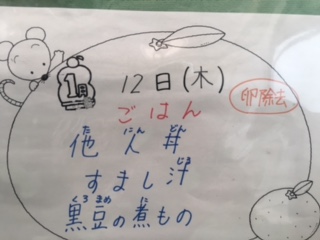 1月 12日(木)
ごはん 卵除去
他人丼
すまし汁
黒豆の煮もの